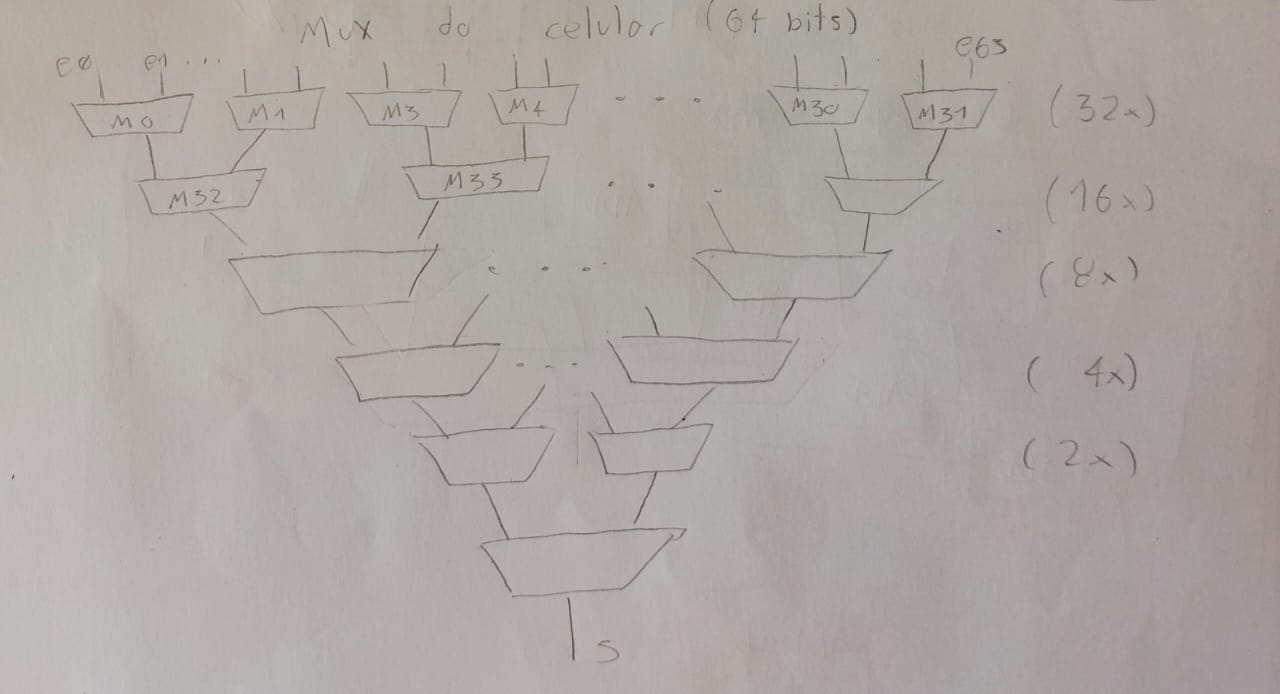 Mux do celular (64 bits)
e0 e1 ... e63
M0 M1 M3 M4 ... M30 M31 (32x)
M32 M33 ... (16x)
... (8x)
... (4x)
(2x)
S